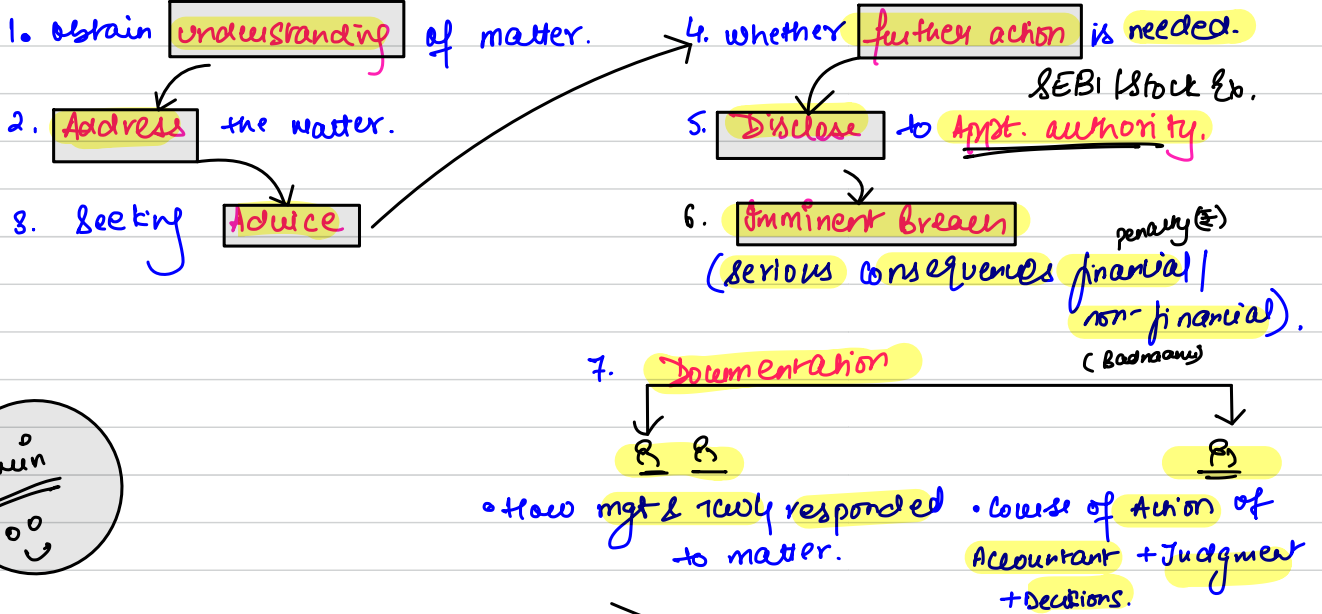 1. Obtain understanding of matter.
2. Address the matter.
3. Seeking Advice
4. whether further action is needed.
SEBI / Stock Ex.
5. Disclose to Appt. authority.
6. Imminent Breach
penalty (₹)
(serious consequences financial /
non-financial).
(Badnaami)
7. Documentation
• How mgt & TCWG responded
to matter.
• Course of Action of
Accountant + Judgment
+ Decisions.